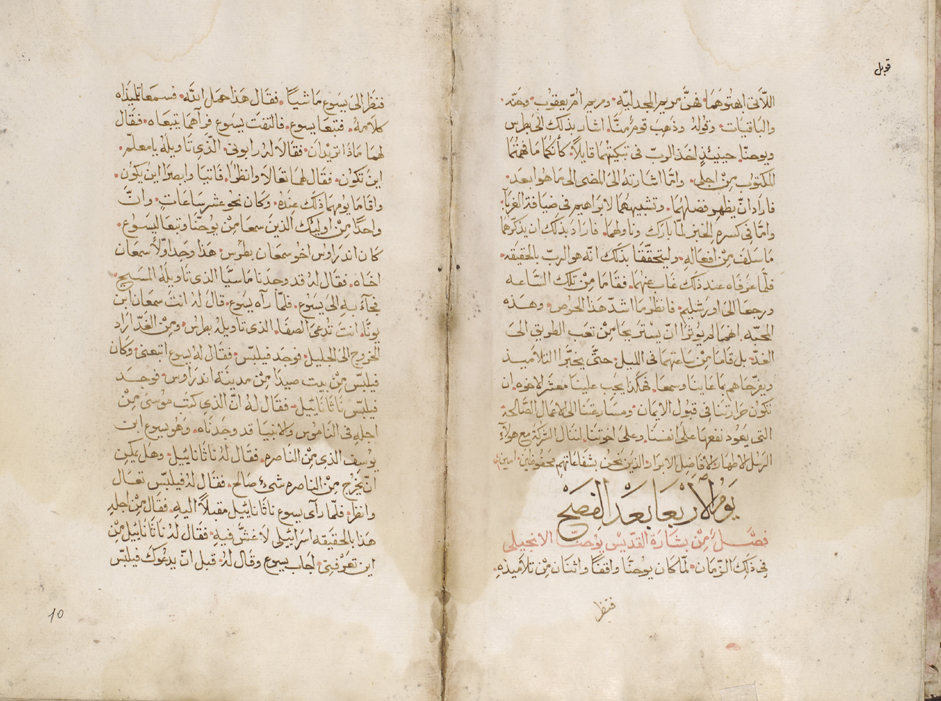 قوبل
اللاتي اخبروهما هنّ مريم المجدلية ومريم امّ يعقوب وحنّه
والباقيات وقوله وذهب قوم منّا اشار بذلك الى بطرس
ويوحنا حينئذٍ اخذ الربّ في تبكيتهما قايلاً كانكما ما فهمتما
المكتوب مِنْ اجلي وانّما اشارته الى المضي الى ما هو ابعد
فاراد ان يظهر فضلهما وتشبيههما لابراهيم في ضيافة الغربا
وامّا في كسره الخبز لما بارك وناولهما فاراد بذلك ان يذكرهما
ما سلف مِنْ افعاله وليتحققا بذلك انّه هو الربّ بالحقيقه
فلما عرفاه عند ذلك غاب عنهما فقاما مِنْ تلك السّاعه
ورجعا الى اورشليم فانظر ما اشدّ هذا الحرص وهذه
المحبّه انهما لم يؤثرا انّ يستريحا مِنْ تعب الطريق الى
الغد بل قاما مِنْ ساعتهما في الليل حتّى يخبّرا التلاميذ
ويفرحاهم بما عاينا وسمعا هكذا يجب علينا معشر الاخوه ان
تكون حرارتنا في قبول الايمان ومسارعتنا الى الاعمال الصّالحة
التي يعود نفعها على انفسنا وعلى اخوتنا لننال الشركة مع هولآء
الرسل الاطهار الافاضل الابرار الذين نحن بشفاعاتهم محفوظين امين
يَومُ الاَربْعَا بَعدَ الفِصَحْ
فصَلٌ مِنْ بشارَة القدّيس يوحنا الانجيلي
في ذلك الزّمان لما كان يوحنّا واقفاً واثنان مِنْ تلاميذه
فنظر
فنظر الى يسوع ماشياً فقال هذا حمل الله فسمعا تلميذاه
كلامه فتبعا يسوع فالتفت يسوع فرآهما تبعاه فقال
لهما ماذا تريدان فقالا له رابوني الذي تاويله يا معلّم
اين تكون فقال لهما تعالا وانظرا فاتيا وابصرا اين يكون
واقاما يومهما ذلك عنده وكان نحو عشر ساعات وانّ
واحداً مِنْ اوليك الذين سمعا مِنْ يوحنّا وتبعا اليسوع
كان اندراوس اخو سمعان بطرس هذا وجد اولاً سمعان
اخاه فقال له قد وجدنا ماسيّا الذي تاويله المسيح
فجآء به الى يسوع فلمّا رآه يسوع قال له انت سمعان ابن
يونّا انت تدعى الصفا الذي تاويله بطرس ومن الغد اراد
الخروج الى الجليل فوجد فيلبّس فقال له يسوع اتبعني وكان
فيلبّس مِنْ بيت صيدا مِنْ مدينة اندراوس فوجد
فيلبّس ناثانائيل فقال له انّ الذي كتب موسى مِنْ
اجله في الناموس والانبيا قد وجدناه وهو يسوع ابن
يوسف الذي مِنْ الناصره فقال له ناثانائيل وهل يمكن
انّ يخرج مِنْ الناصره شيء صالح فقال له فيلبّس تعال
وانظر فلما رآى يسوع ناثانائيل مقبلاً اليه فقال مِنْ اجله
هذا بالحقيقه اسرائيلي لا غشّ فيه فقال له ناثانائيل مِنْ
اين تعرفني اجاب يسوع وقال له قبل انّ يدعوك فيلبّس
10